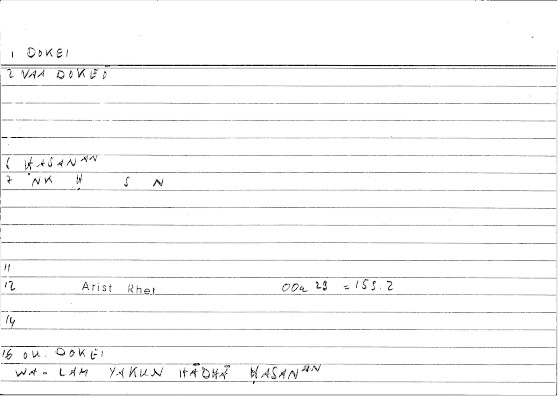 1 DOKEI
2 VAA DOKEŌ
6 ḤASANAN
7 NK Ḥ S N
11
12 Arist Rhet 00a 29 = 153.2
14
15 OU. DOKEI
WA - LAM YAKUN HĀDHĀ ḤASANAN